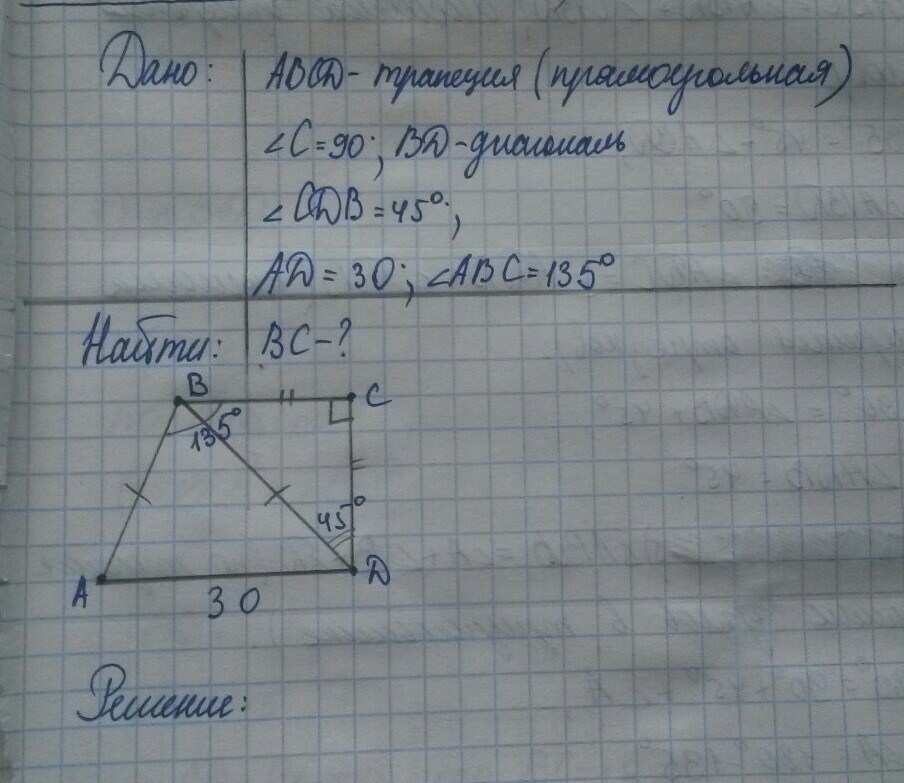 Дано: ABCD - трапеция (прямоугольная)
∠C = 90°; BD - диагональ
∠CDB = 45°;
AD = 30; ∠ABC = 135°
Найти: BC - ?
B C
135°
45°
A D
30
Решение: